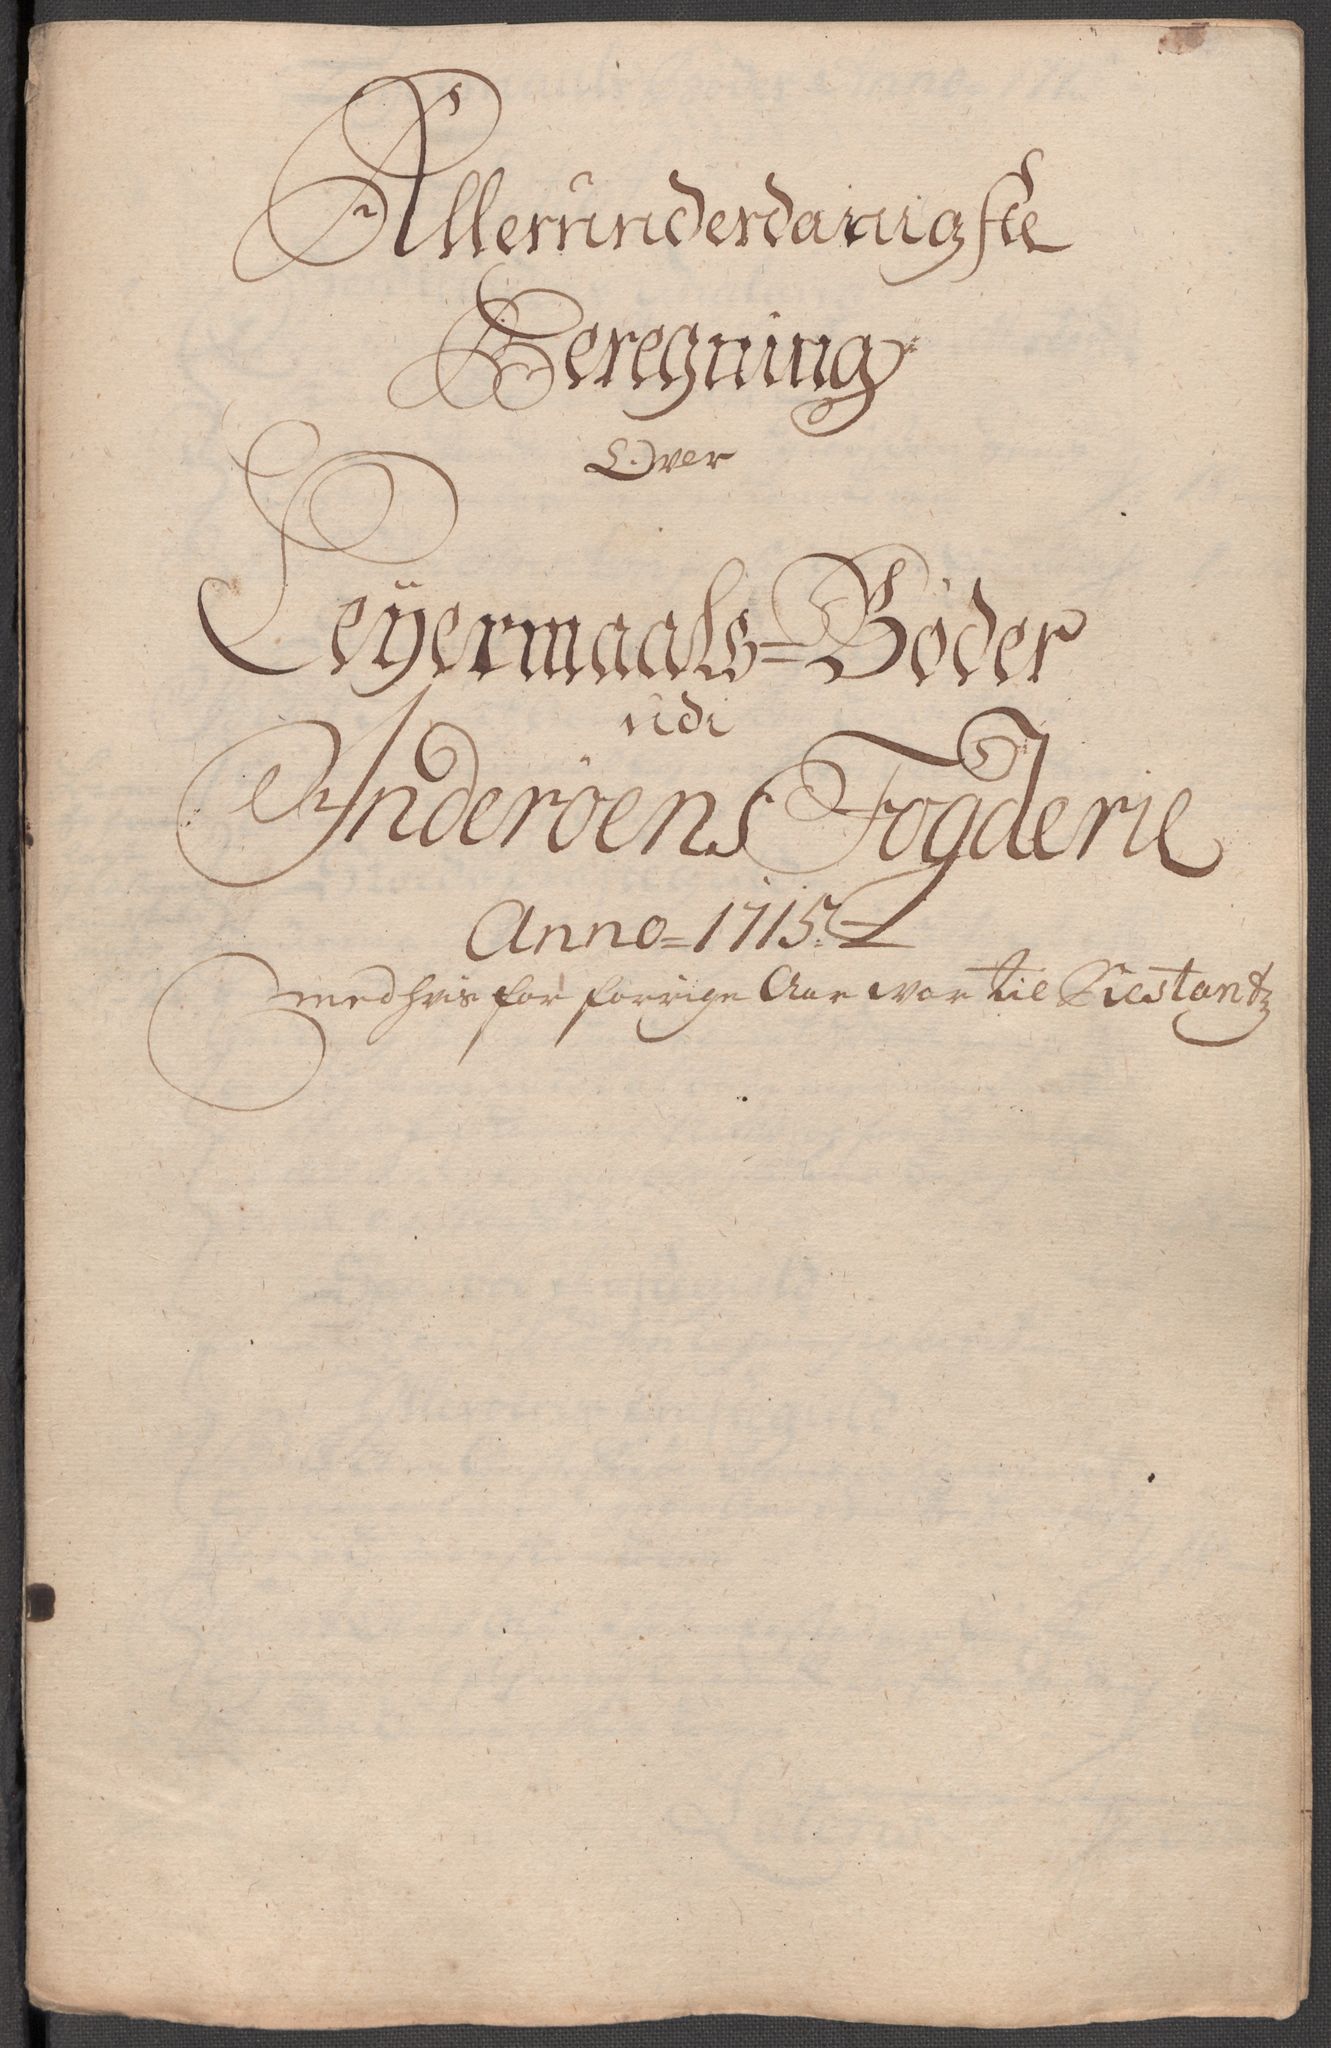 Allerunderdanigste
Beregning
Over
Leÿermaals=Bøder
udi
Inderöens Fogderie
Anno=1715
med hvis for forrige Aar var til Restantz